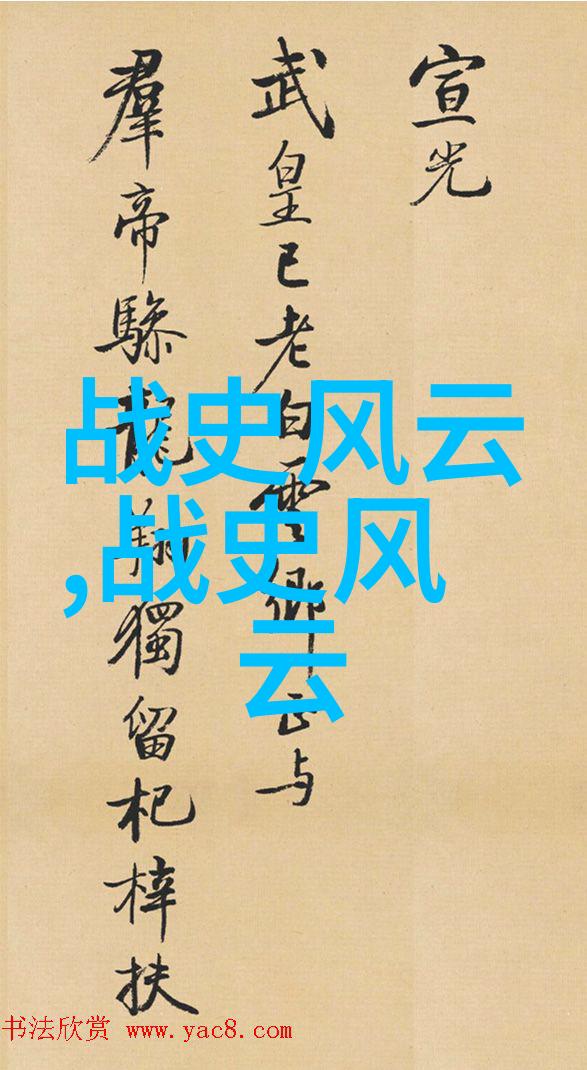 宣光
武皇已老白雲鄉正与
羣帝驂龍翔獨留杞梓扶
战史风云
,战史风
云
书法欣赏 www.yac8.com